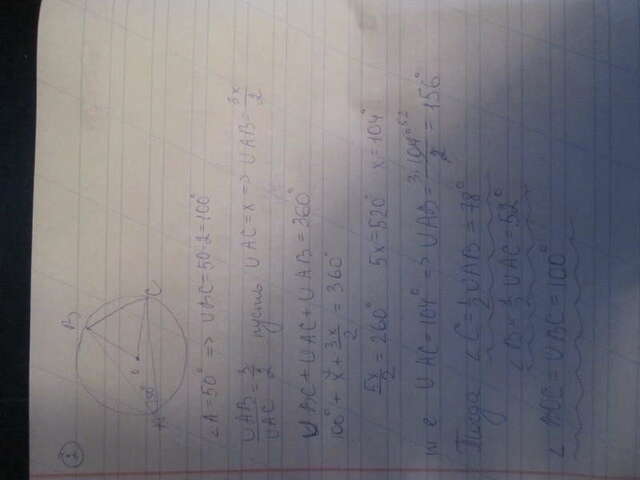 2
B
C
O
A
50°
∠A=50° => ∪BC=50·2=100°
∪AB/∪AC = 3/2 пусть ∪AC=x => ∪AB=3x/2
∪BC+∪AC+∪AB=360°
100°+x+3x/2=360°
5x/2=260° 5x=520° x=104°
т е ∪AC=104° => ∪AB=3·104°/2=156°
52
Тогда ∠C=1/2∪AB=78°
∠B=1/2∪AC=52°
∠BOC=∪BC=100°